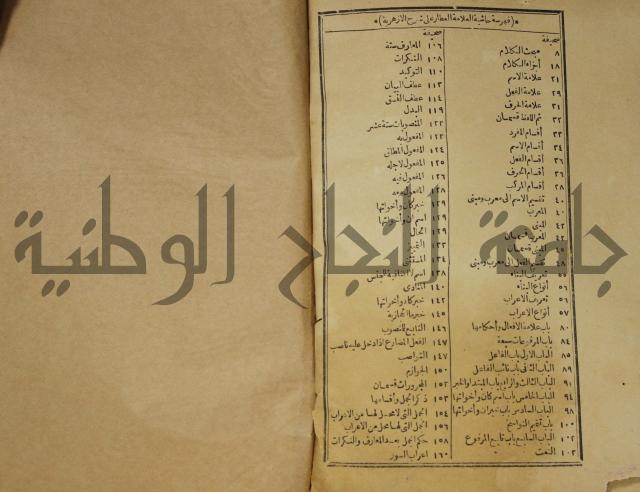 (فهرسة حاشية العلامة العطار على شرح الازهرية)
صحيفة
٨ مبحث الكلام
١٨ أجزاء الكلام
٢١ علامة الاسم
٢٩ علامة الفعل
٣١ علامة الحرف
٣٢ ثم اللفظ قسمان
٣٣ أقسام المفرد
٣٤ أقسام الاسم
٣٦ أقسام الفعل
٣٦ أقسام الحرف
٣٨ أقسام المركب
٤٠ تقسيم الاسم الى معرب ومبنى
٤٠ المعرب
٤٢ المبنى
٤٢ المعرب قسمان
المبنى قسمان
٤٨ تقسيم الفعل الى معرب ومبنى
٥٥ تعريف البناء
٥٦ أنواع البناء
٥٦ تعريف الاعراب
٥٧ أنواع الاعراب
٨٠ باب علامة الافعال وأحكامها
٨٤ باب المرفوعات سبعة
٨٥ الباب الاول باب الفاعل
٨٩ الباب الثانى باب نائب الفاعل
٩١ الباب الثالث والرابع باب المبتدا والخبر
٩٤ الباب الخامس باب اسم كان وأخواتها
٩٨ الباب السادس باب خبر ان وأخواتها
١٠٠ باب تقديم النواسخ
١٠٢ الباب السابع باب تابع المرفوع
١٠٣ النعت
صحيفة
١٠٦ المعارف ستة
١٠٨ النكرات
١١٠ التوكيد
١١٣ عطف البيان
١١٤ عطف النسق
١١٩ البدل
١٢٢ المنصوبات ستة عشر
١٢٢ المفعول به
١٢٤ المفعول المطلق
١٢٥ المفعول لاجله
١٢٦ المفعول فيه
١٢٨ المفعول معه
١٢٩ خبر كان وأخواتها
١٢٩ اسم ان وأخواتها
١٢٩ الحال
١٣٣ التمييز
١٣٤ المستثنى
١٣٨ اسم لا النافية للجنس
١٤٠ المنادى
١٤٢ خبر كاد وأخواتها
١٤٥ خبر ما الحجازية
١٤٦ التابع للمنصوب
١٤٧ الفعل المضارع اذا دخل عليه ناصب
١٤٧ النواصب
١٥٠ الجوازم
١٥٢ المجرورات قسمان
١٥٣ ذكر الجمل وأقسامها
١٥٤ الجمل التى لا محل لها من الاعراب
١٥٦ الجمل التى لها محل من الاعراب
١٥٨ حكم الجمل بعد المعارف والنكرات
١٦٠ اعراب السور
جامعة النجاح الوطنية